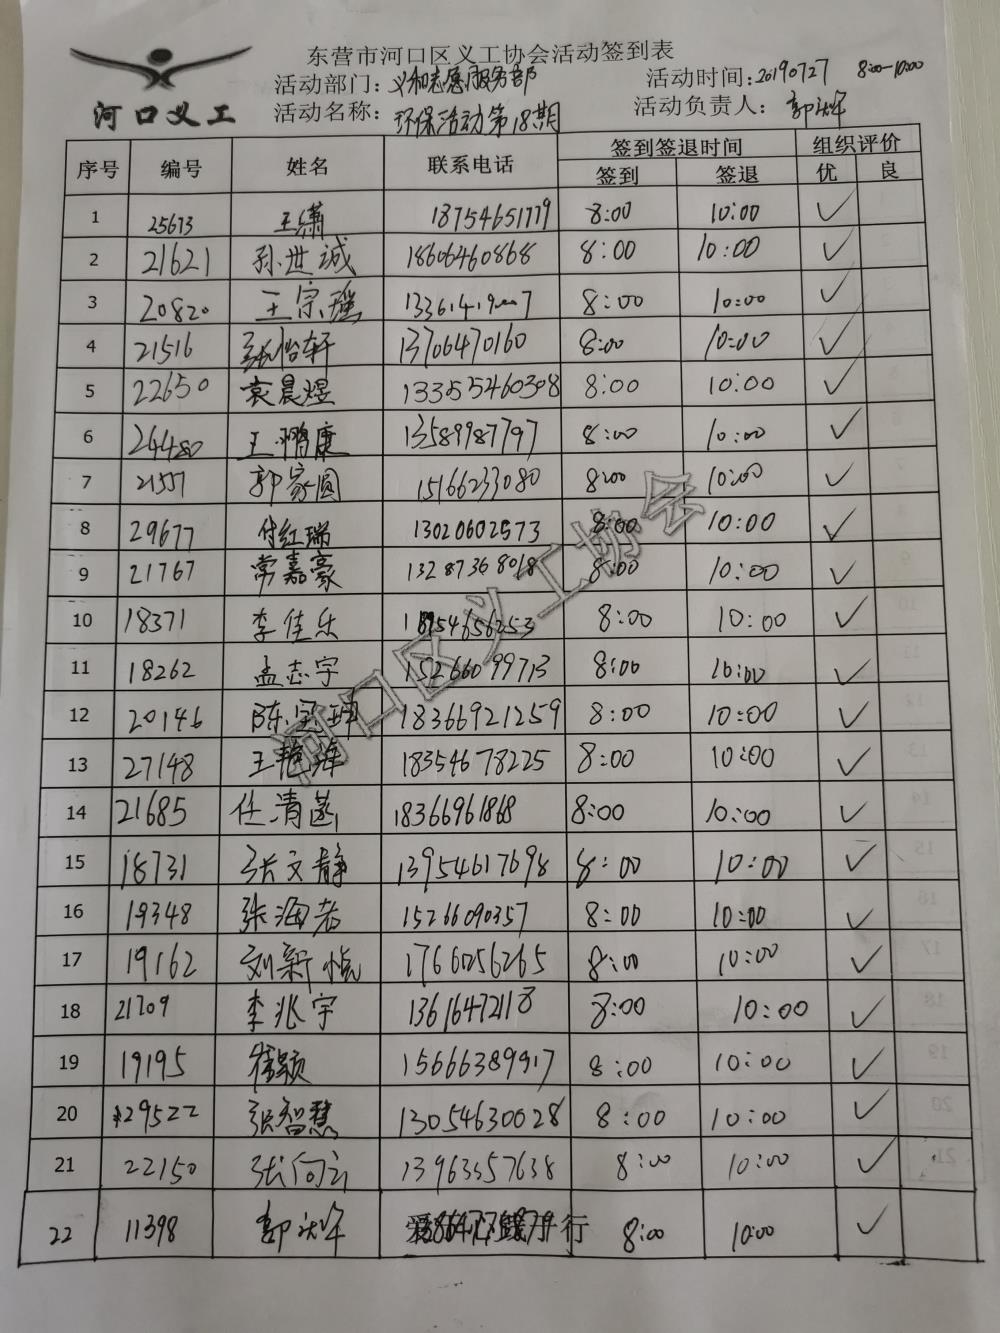 东营市河口区义工协会活动签到表
活动部门：义和志愿服务部 活动时间：20190727 8:00-10:00
河口义工
活动名称：环保活动第18期 活动负责人：
序号 编号 姓名 联系电话 签到签退时间 组织评价
签到 签退 优 良
1 25673 王潇 18754651779 8:00 10:00 ✓
2 21621 孙世诚 18606460868 8:00 10:00 ✓
3 20820 王宗瑶 8:00 10:00 ✓
4 21516 张怡轩 13706470160 8:00 10:00 ✓
5 22650 袁晨煜 8:00 10:00 ✓
6 24480 王鹏康 13589987797 8:00 10:00 ✓
7 21557 郭家圆 15166233080 8:00 10:00 ✓
8 29677 付红瑞 13020602573 8:00 10:00 ✓
9 21767 常嘉豪 13287368018 8:00 10:00 ✓
10 18371 李佳乐 8:00 10:00 ✓
11 18262 孟志宇 15266099713 8:00 10:00 ✓
12 20146 18366921259 8:00 10:00 ✓
13 27148 18354678225 8:00 10:00 ✓
14 21685 任清菡 18366961868 8:00 10:00 ✓
15 18731 张文静 13954617698 8:00 10:00 ✓
16 19348 张海若 15266090357 8:00 10:00 ✓
17 19162 刘新悦 17660256265 8:00 10:00 ✓
18 21709 李兆宇 13616472118 8:00 10:00 ✓
19 19195 15666389917 8:00 10:00 ✓
20 29522 张智慧 13054630028 8:00 10:00 ✓
21 22150 张向云 13963557638 8:00 10:00 ✓
22 11398 8:00 10:00 ✓
河口区义工协会